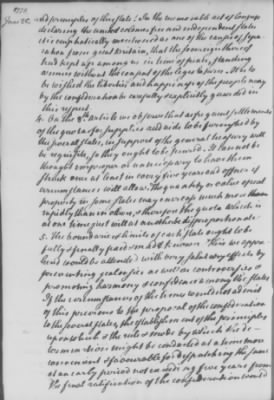 1778
June 25.
and principles of this state: In the memorable act of Congress
declaring the united colonies free and independent states
it is emphatically mentioned as one of the causes of sepa-
ration from great Britain, that the sovereign thereof
had kept up among us in time of peace, standing
armies without the consent of the legislatures. It is to
be wished the liberties and happiness of the people may
by the confederation be carefully & explicitly guarded in
this respect.
4. On the 8th article we observe that as frequent settlements
of the quotas for supplies and aids to be furnished by
the several states, in support of the general treasury will
be requisite, so they ought to be secured. It cannot be
thought improper or unnecessary to have them
struck once at least in every five years and oftener if
circumstances will allow. The quantity or value of real
property in some states may encrease much more than
rapidly than in others, & therefore the quota which is
at one time just will at another be disproportionate
5. The boundaries & limits of each state ought to be
fully & finally fixed & made known. This we appre-
hend would be attended with very salutary effects by
preventing jealousies as well as controversies &
promoting harmony & confidence among the states.
If the circumstances of the times would not admit
of this previous to the proposal of the confederation
to the several states, the establishment of the principles
upon which & the rule & mode by which the de-
termination might be conducted at a time more
convenient & favourable for despatching the same
at an early period not exceeding five years from
the final ratification of the confederation would